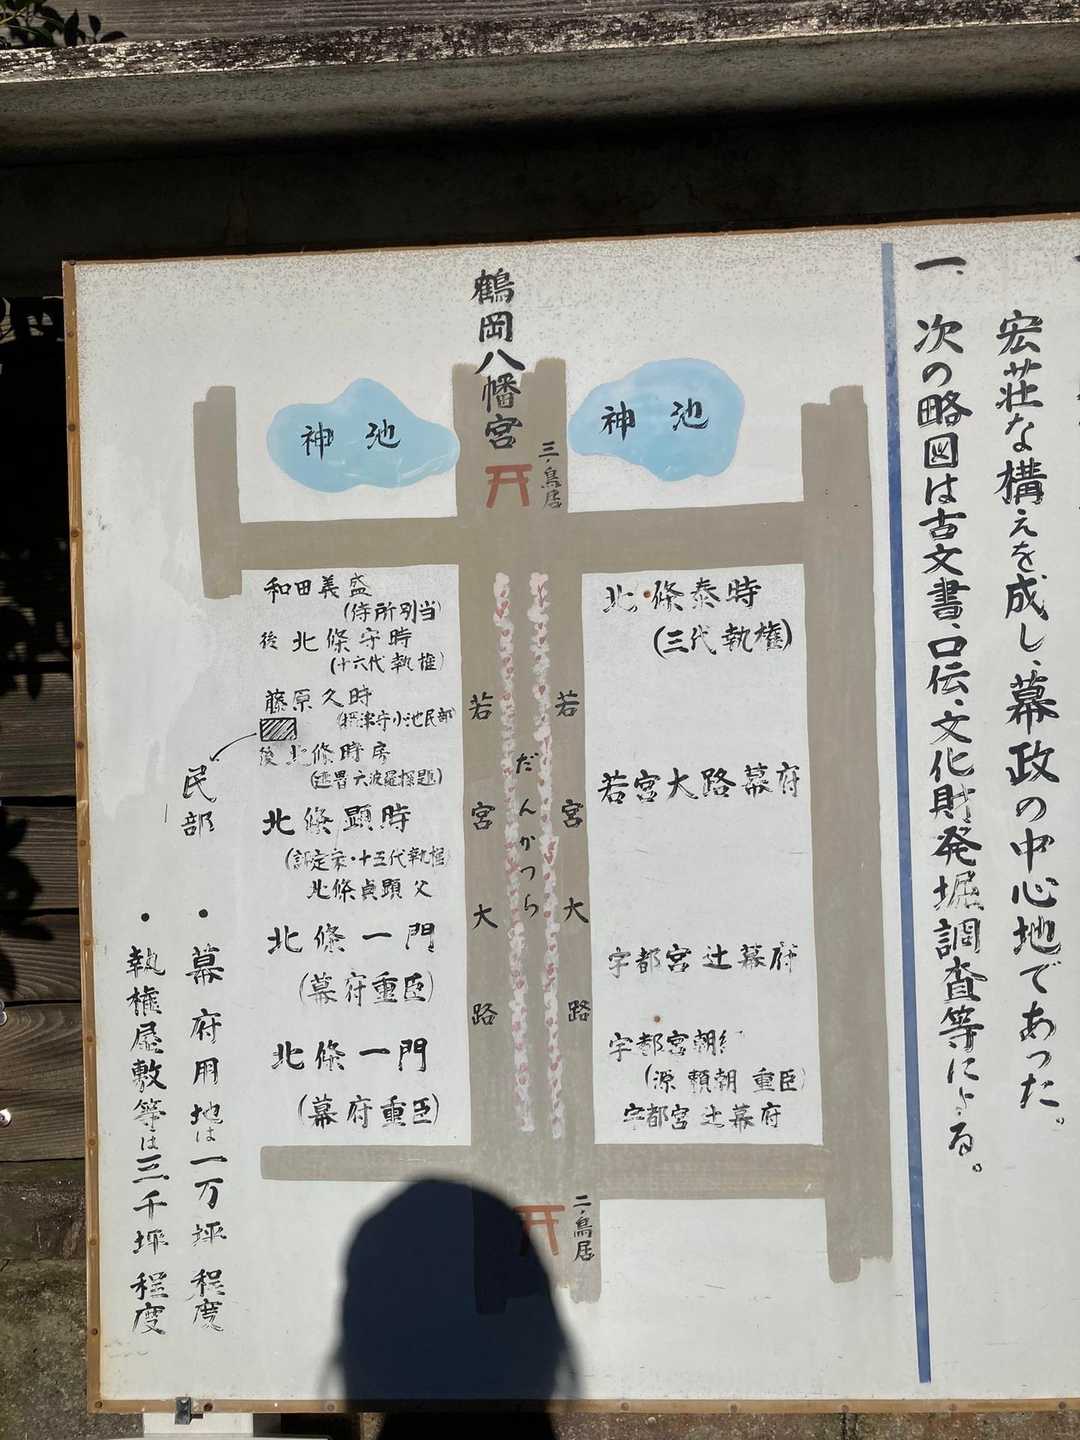 宏荘な構えを成し、幕政の中心地であった。
一、次の略図は古文書、口伝、文化財発堀調査等による。
鶴岡八幡宮
神池
神池
三ノ鳥居
北條泰時
(三代執権)
若宮大路幕府
宇都宮辻幕府
宇都宮朝
(源頼朝重臣)
宇都宮辻幕府
若宮大路
だんかつら
若宮大路
二ノ鳥居
和田義盛
(侍所別当)
後北條守時
(十六代執権)
藤原久時
(摂津守小池民部)
後北條時房
(連署六波羅探題)
北條顕時
(評定衆・十五代執権
北條貞顕父
北條一門
(幕府重臣)
北條一門
(幕府重臣)
民部
・幕府用地は一万坪程度
・執権屋敷等は三千坪程度